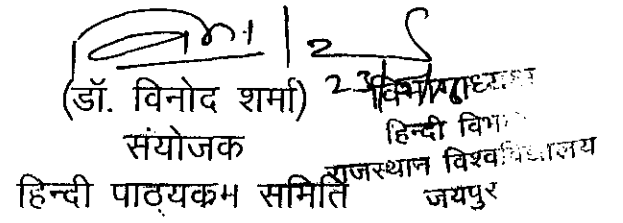 (डॉ. विनोद शर्मा)
संयोजक
हिन्दी पाठ्यकम समिति
विभागाध्यक्ष
हिन्दी विभाग
राजस्थान विश्वविद्यालय
जयपुर